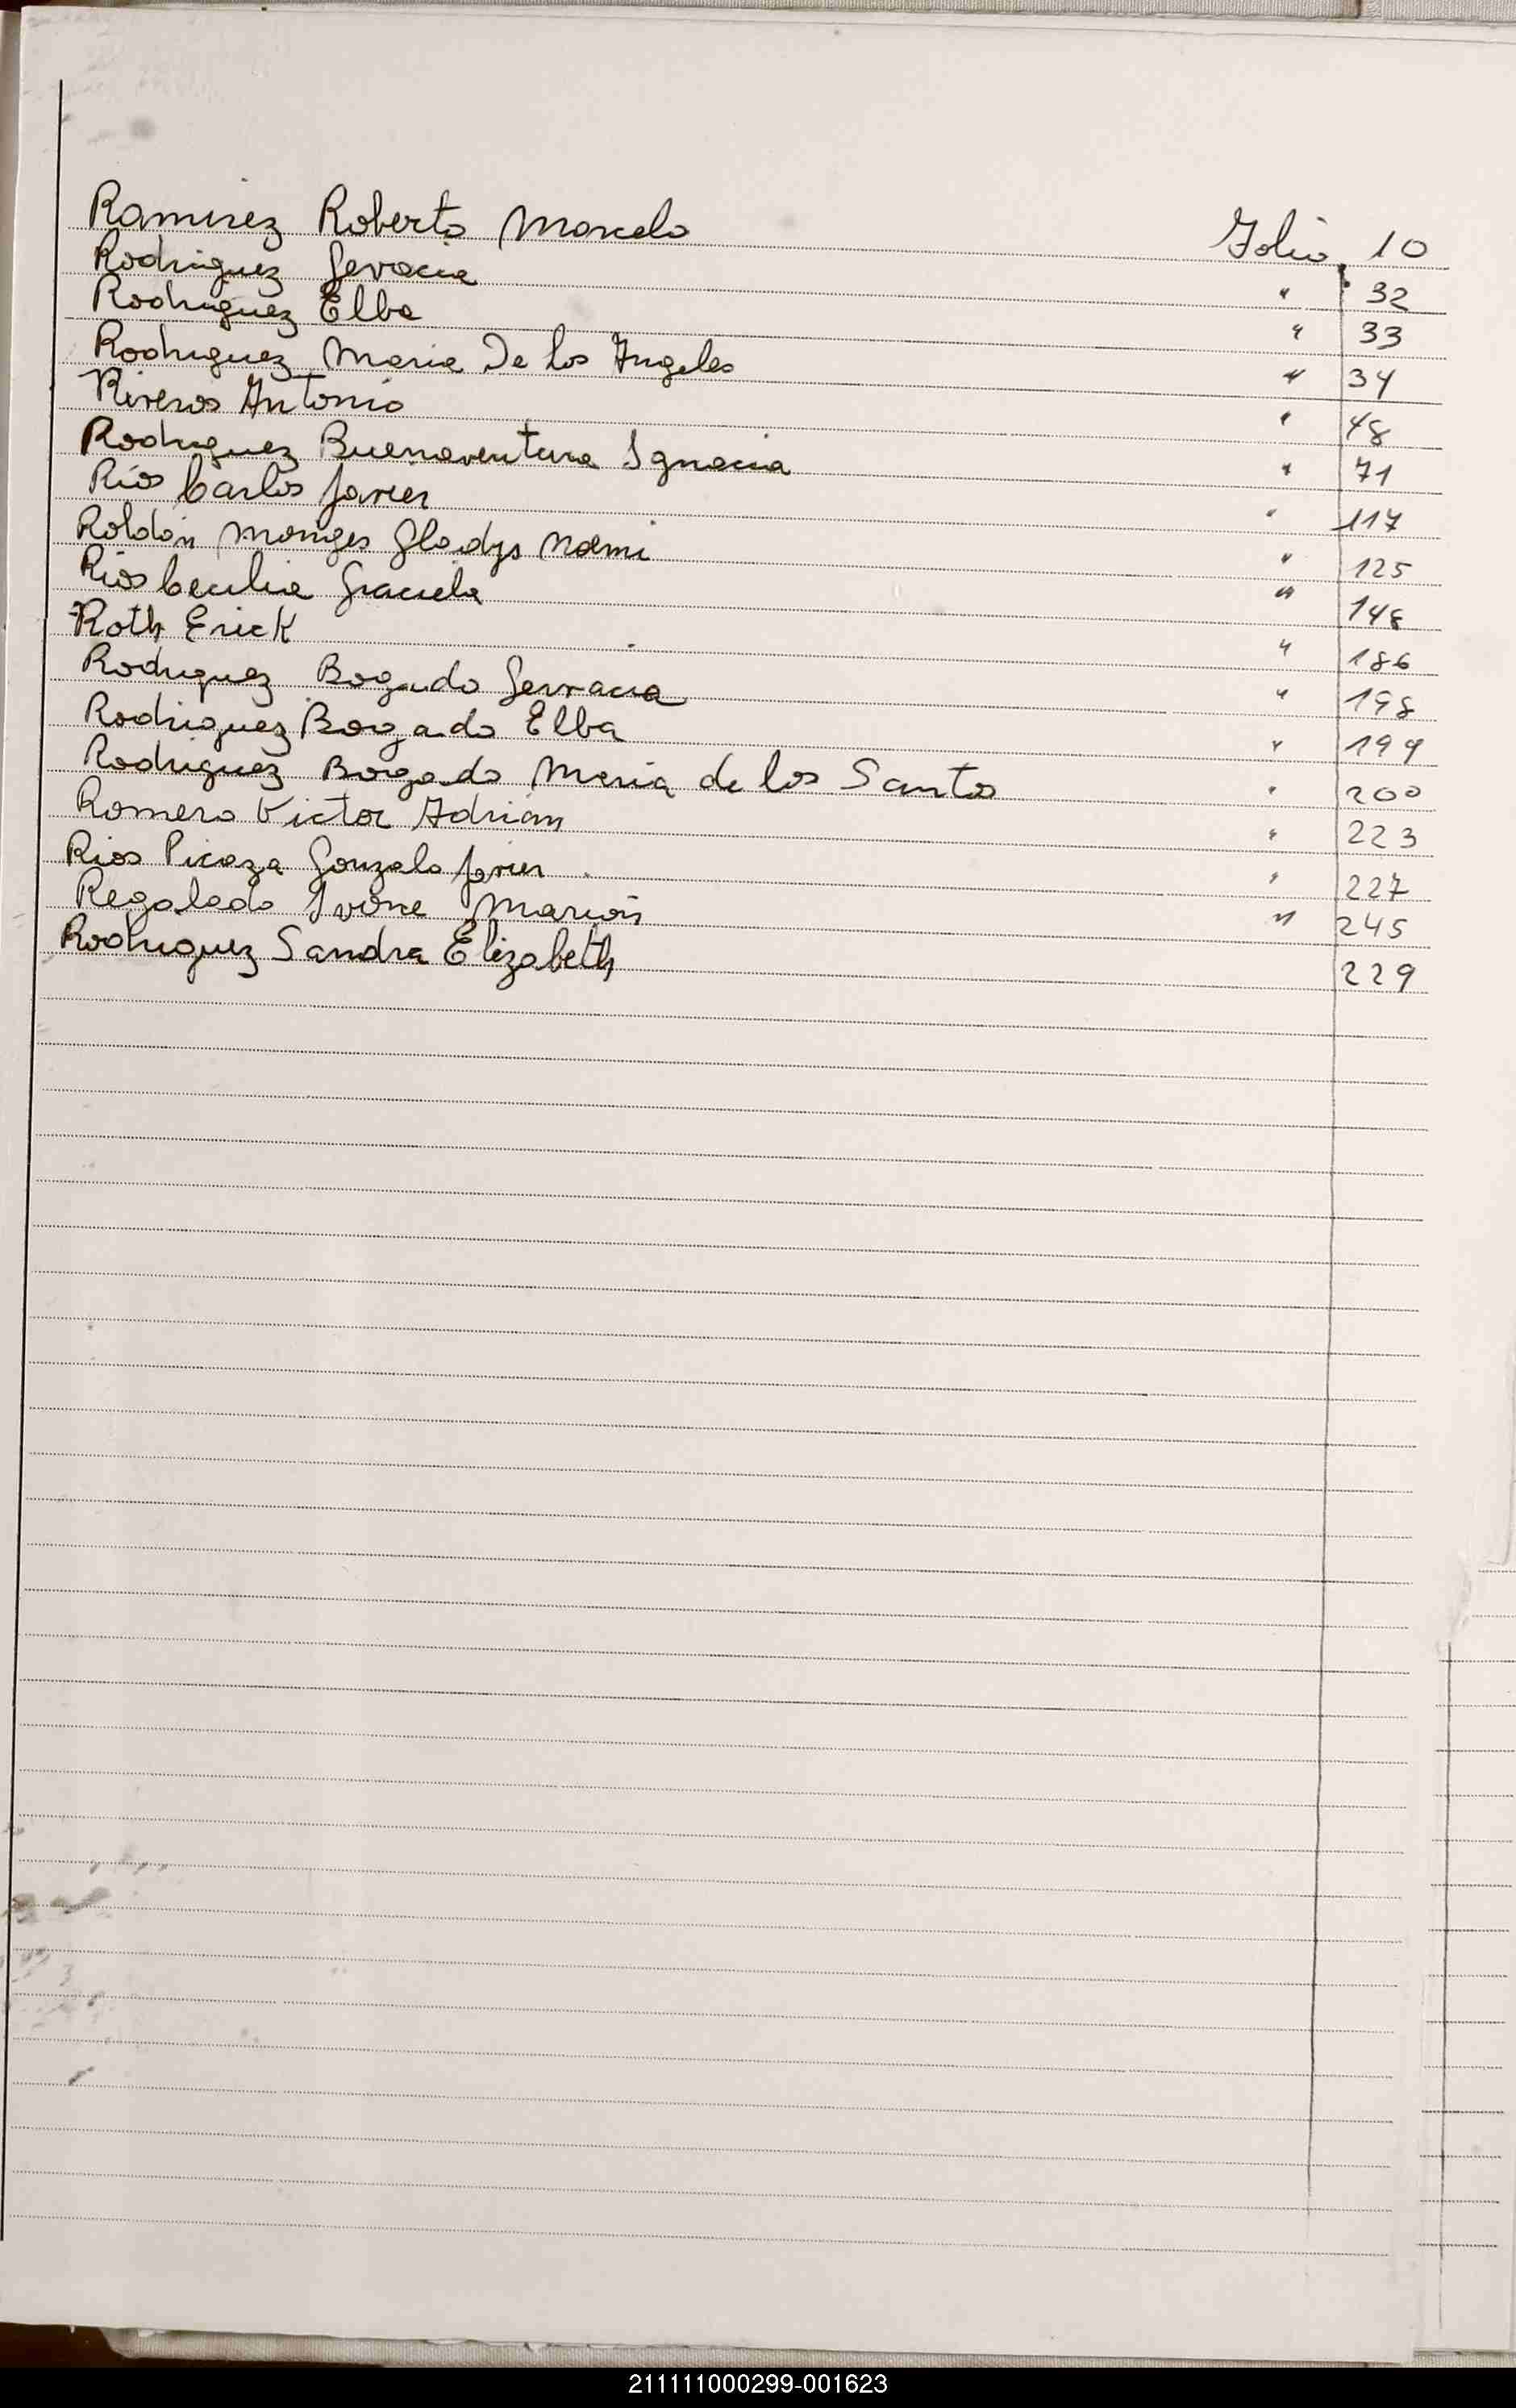 Ramirez Roberto Marcelo Folio 10
Rodriguez Gervacia " 32
Rodriguez Elba " 33
Rodriguez Maria De los Angeles " 34
Riveros Antonio " 48
Rodriguez Buenaventura Ignacia " 71
Ríos Carlos Javier " 117
Roldán Monges Gladys Noemi " 125
Rios Cecilia Graciela " 148
Roth Erick " 186
Rodriguez Bogado Gervacia " 198
Rodriguez Bogado Elba " 199
Rodriguez Bogado Maria de los Santos " 200
Romero Victor Adrián " 223
Rios Picaza Gonzalo Javier " 227
Regalado Ivone Marión " 245
Rodriguez Sandra Elizabeth 229
211111000299-001623